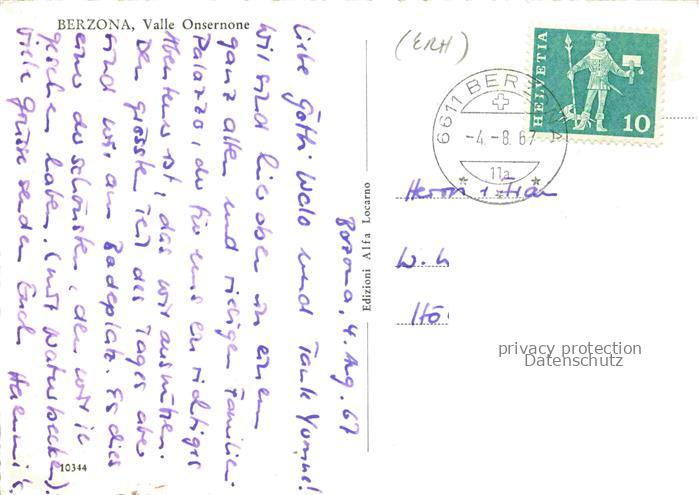 BERZONA, Valle Onsernone
Berzona, 4. Aug. 67
Liebe Götti Walo und Tante Yvonne!
Wir sind hier oben in einem
ganz alten und riesigen Familien-
Palazzo, der für uns ein richtiges
Abenteuer ist, das wir auskosten.
Den grössten Teil des Tages aber
sind wir am Badeplatz. Es ist dies
einer der schönsten, den wir je
gesehen haben. (mit Naturbecken).
Viele Grüsse senden Euch
10344
Edizioni Alfa Locarno
(ERH)
6611 BERZONA
-4.-8.67
11a
HELVETIA
10
Herrn u Frau
W. H
Hö
privacy protection
Datenschutz